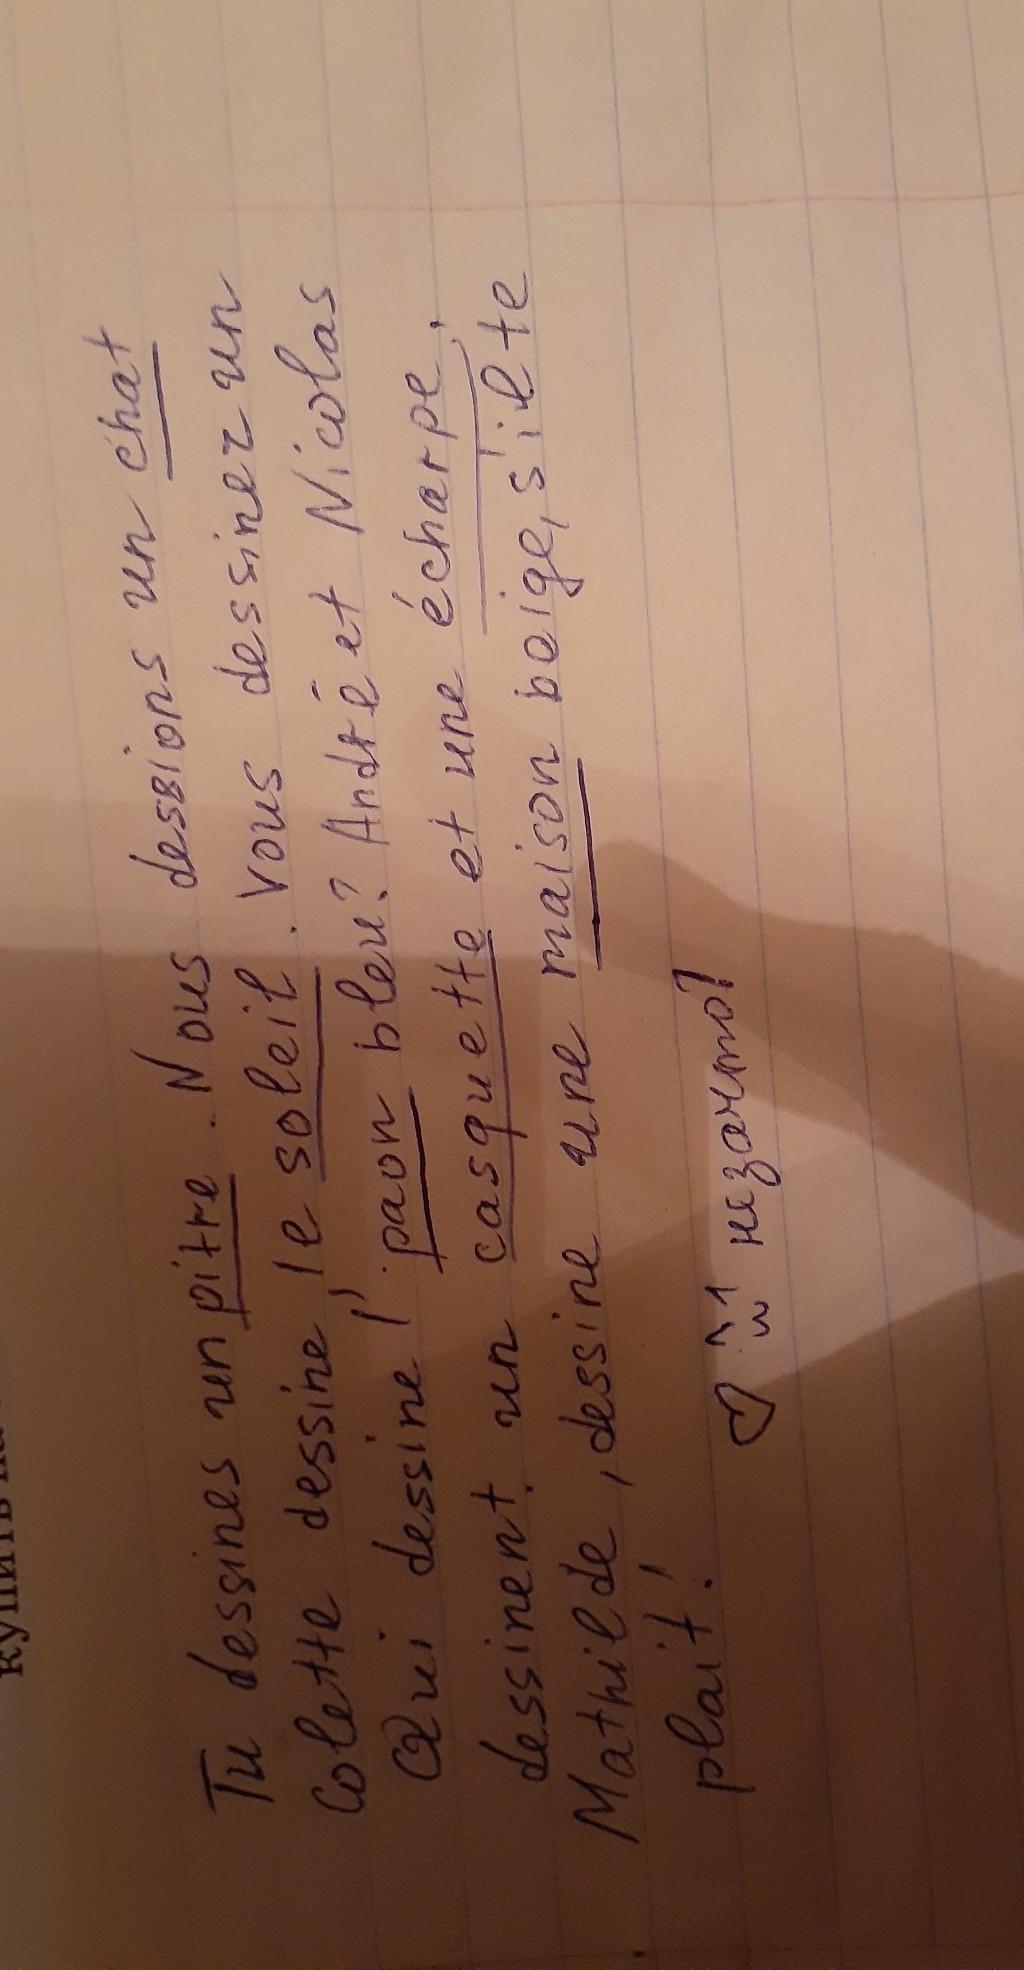 Tu dessines un pitre. Nous dessions un chat
Colette dessine le soleil. Vous dessinez un
Qui dessine l' paon bleu? André et Nicolas
dessinent un casquette et une écharpe.
Mathilde, dessine une maison beige, s'il te
plait!
незачто!